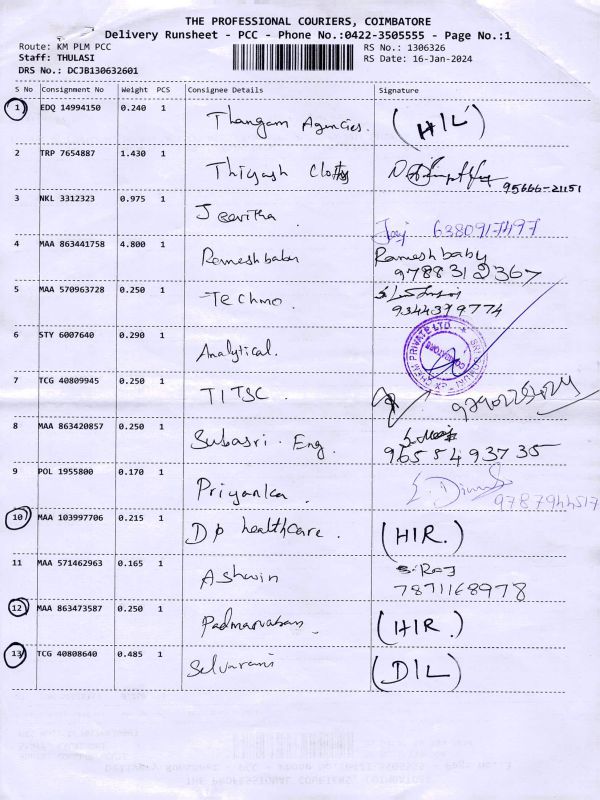 THE PROFESSIONAL COURIERS, COIMBATORE
Delivery Runsheet - PCC - Phone No.:0422-3505555 - Page No.:1
Route: KM PLM PCC
RS No.: 1306326
Staff: THULASI
RS Date: 16-Jan-2024
DRS No.: DCJB130632601
S No Consignment No Weight PCS Consignee Details Signature
1 EDQ 14994150 0.240 1 Thangam Agencies. (H/L)
2 TRP 7654887 1.430 1 Thiyash
95666-21151
3 NKL 3312323 0.975 1 Jeevitha.
6380917497
4 MAA 863441758 4.800 1 Rameshbabu Rameshbaby
9788312367
5 MAA 570963728 0.250 1 Techmo.
9344379774
6 STY 6007640 0.290 1 Analytical.
7 TCG 40809945 0.250 1 TITSC.
8 MAA 863420857 0.250 1 Subasri. Eng
9655493735
9 POL 1955800 0.170 1 Priyanka.
9787944517
10 MAA 103997706 0.215 1 Dp healthcare. (HIR.)
11 MAA 571462963 0.165 1 Ashwin S. Raj
7871168978
12 MAA 863473587 0.250 1 Padmanaban (HIR.)
13 TCG 40808640 0.485 1 Selvarani (DIL)